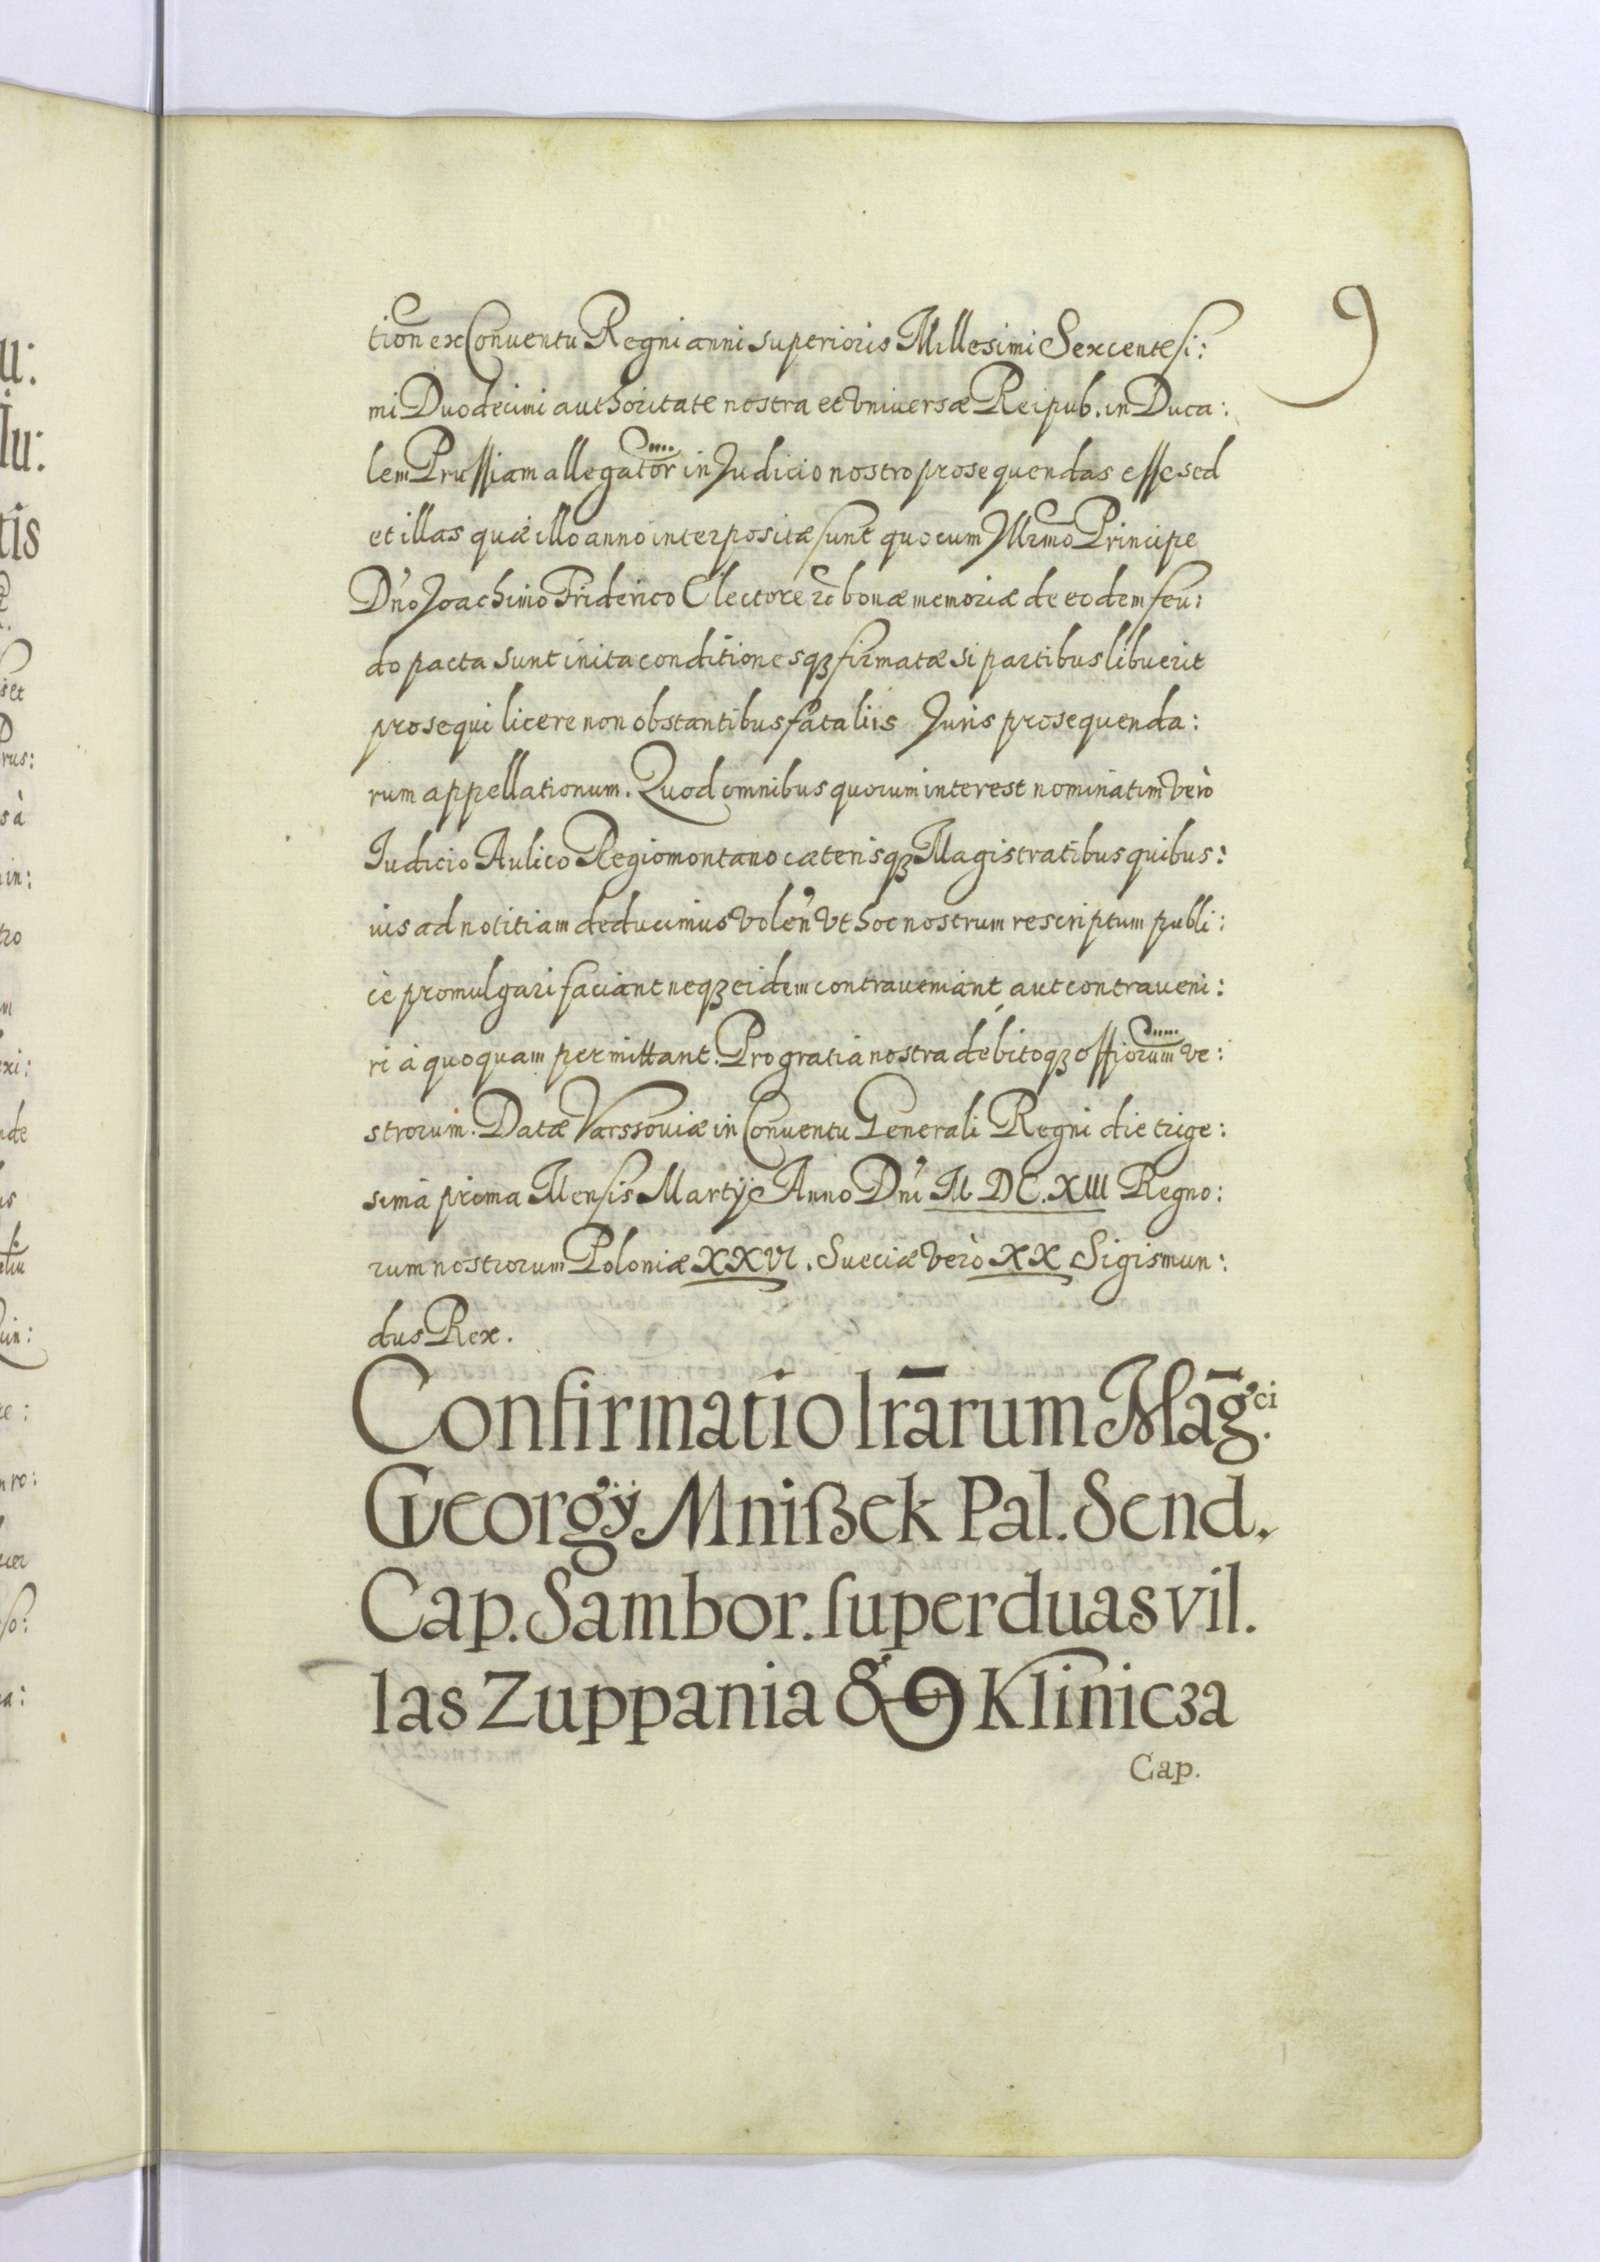 9
tion ex Conventu Regni anni superioris Millesimi Sexcentesi:
mi Duodecimi authoritate nostra et Vniversæ Reipub. in Duca:
lem Prussiam allegator in Judicio nostro prosequendas esse sed
et illas quæ illo anno interpositæ sunt quo cum Illrmo Principe
D'no Joachimo Friderico Electore bonæ memoriæ de eodem feu:
do pacta sunt inita conditionesqꝫ firmatæ si partibus libuerit
prosequi licere non obstantibus fataliis Juris prosequenda:
rum appellationum. Quod omnibus quorum interest nominatim Verò
Iudicio Aulico Regiomontano cæterisqꝫ Magistratibus quibus:
uis ad notitiam deducimus Volen' Vt hoc nostrum rescriptum publi:
cè promulgari faciant neqꝫ eidem contraveniant aut contraveni:
ri à quoquam permittant. Pro gratia nostra débitoqꝫ offiorum ve:
strorum. Datæ Varssoviæ in Conventu Generali Regni die trige:
sima prima Mensis Martÿ Anno Dni' M DC. XIII Regno:
rum nostrorum Poloniæ XXVI. Sueciæ Verò XX Sigismun:
dus Rex.
Confirmatio lrārum Māg.ci
Georgÿ Mnißek Pal. Send.
Cap. Sambor. super duas vil.
las Zuppania & Kliniczа
Cap.